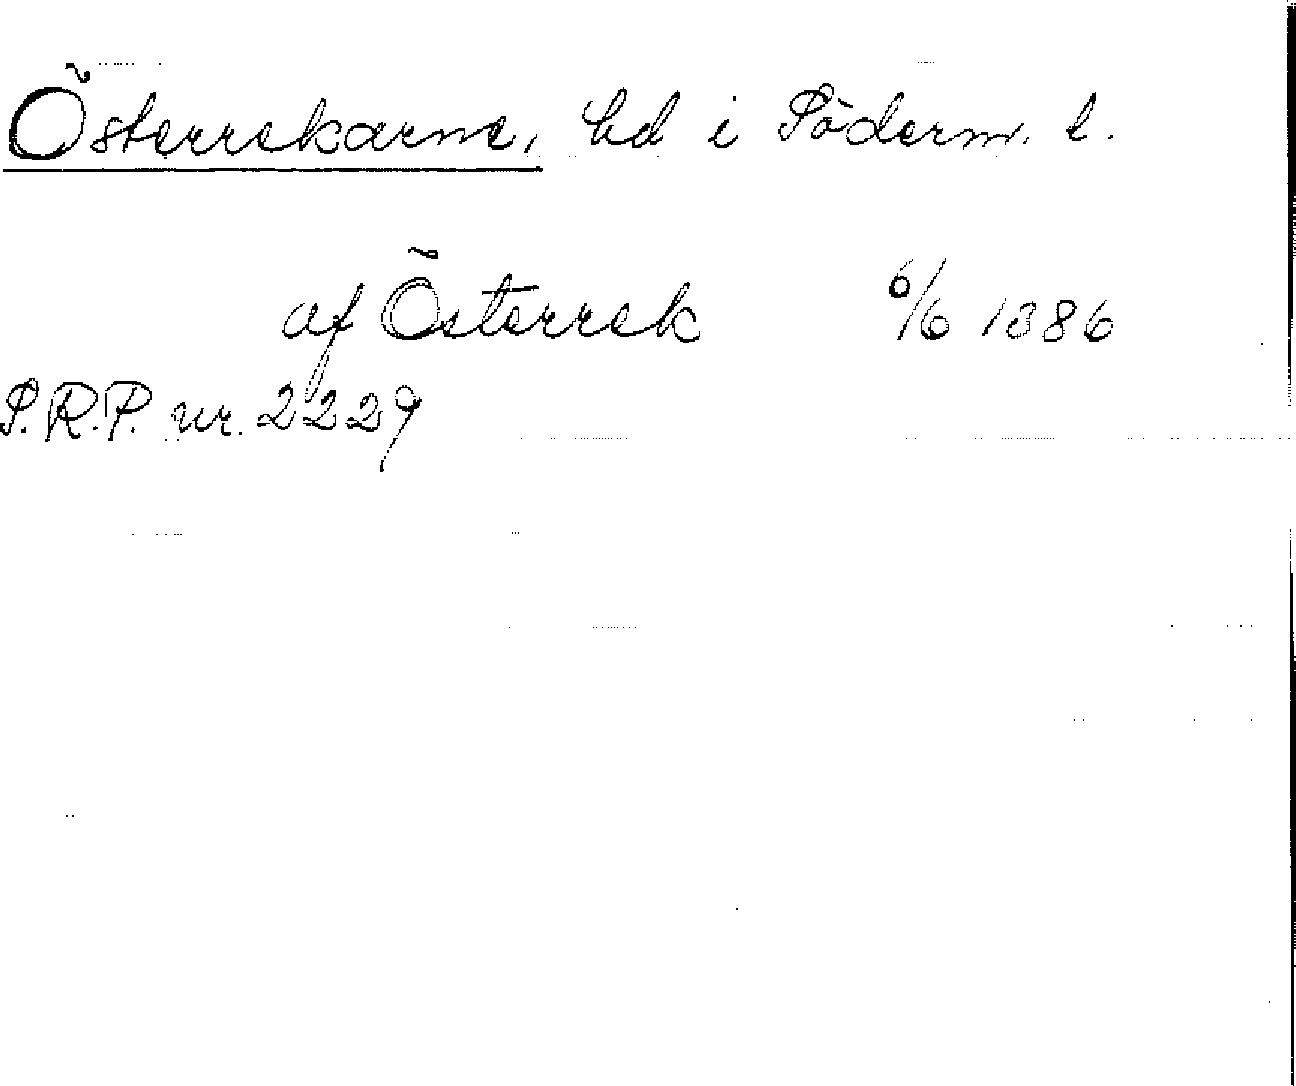 Österrekarne, hd i Söderm. l.
af Österrek 6/6 1386
S.R.P. nr. 2229